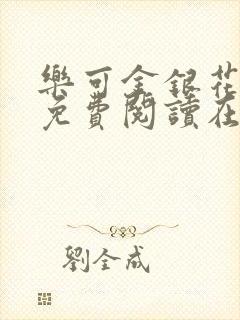 樂可金銀花
免費閱讀在
劉全成